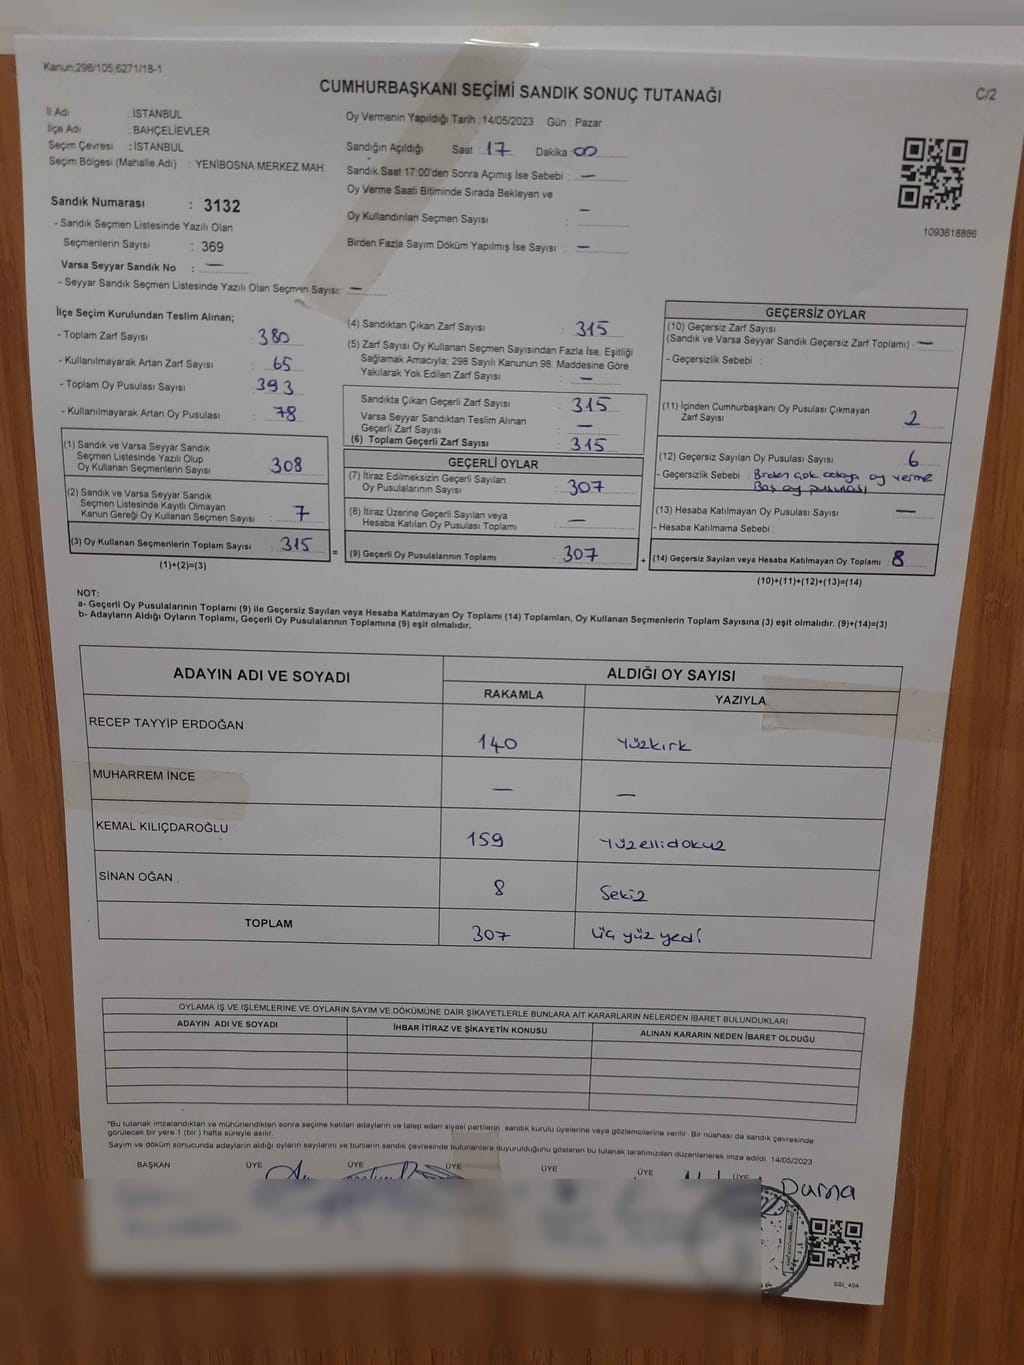 Kanun:298/105,6271/18-1
CUMHURBAŞKANI SEÇİMİ SANDIK SONUÇ TUTANAĞI
C/2
İl Adı : İSTANBUL
İlçe Adı : BAHÇELİEVLER
Seçim Çevresi : İSTANBUL
Seçim Bölgesi (Mahalle Adı) : YENİBOSNA MERKEZ MAH.
Sandık Numarası : 3132
- Sandık Seçmen Listesinde Yazılı Olan
Seçmenlerin Sayısı : 369
Varsa Seyyar Sandık No : —
- Seyyar Sandık Seçmen Listesinde Yazılı Olan Seçmen Sayısı: —
Oy Vermenin Yapıldığı Tarih : 14/05/2023 Gün : Pazar
Sandığın Açıldığı Saat : 17 Dakika : 00
Sandık Saat 17:00'den Sonra Açımış İse Sebebi : —
Oy Verme Saati Bitiminde Sırada Bekleyen ve
Oy Kullandırılan Seçmen Sayısı : —
Birden Fazla Sayım Döküm Yapılmış İse Sayısı : —
1093618886
İlçe Seçim Kurulundan Teslim Alınan;
- Toplam Zarf Sayısı : 380
- Kullanılmayarak Artan Zarf Sayısı : 65
- Toplam Oy Pusulası Sayısı : 393
- Kullanılmayarak Artan Oy Pusulası : 78
(1) Sandık ve Varsa Seyyar Sandık
Seçmen Listesinde Yazılı Olup
Oy Kullanan Seçmenlerin Sayısı : 308
(2) Sandık ve Varsa Seyyar Sandık
Seçmen Listesinde Kayıtlı Olmayan
Kanun Gereği Oy Kullanan Seçmen Sayısı : 7
(3) Oy Kullanan Seçmenlerin Toplam Sayısı : 315
(1)+(2)=(3)
=
(4) Sandıktan Çıkan Zarf Sayısı : 315
(5) Zarf Sayısı Oy Kullanan Seçmen Sayısından Fazla İse, Eşitliği
Sağlamak Amacıyla; 298 Sayılı Kanunun 98. Maddesine Göre
Yakılarak Yok Edilen Zarf Sayısı : —
Sandıkta Çıkan Geçerli Zarf Sayısı : 315
Varsa Seyyar Sandıktan Teslim Alınan
Geçerli Zarf Sayısı : —
(6) Toplam Geçerli Zarf Sayısı : 315
GEÇERLİ OYLAR
(7) İtiraz Edilmeksizin Geçerli Sayılan
Oy Pusulalarının Sayısı : 307
(8) İtiraz Üzerine Geçerli Sayılan veya
Hesaba Katılan Oy Pusulası Toplamı : —
(9) Geçerli Oy Pusulalarının Toplamı : 307
+
GEÇERSİZ OYLAR
(10) Geçersiz Zarf Sayısı
(Sandık ve Varsa Seyyar Sandık Geçersiz Zarf Toplamı) : —
- Geçersizlik Sebebi :
(11) İçinden Cumhurbaşkanı Oy Pusulası Çıkmayan
Zarf Sayısı : 2
(12) Geçersiz Sayılan Oy Pusulası Sayısı : 6
- Geçersizlik Sebebi : Birden çok adaya oy verme
Boş oy pusulası
(13) Hesaba Katılmayan Oy Pusulası Sayısı : —
- Hesaba Katılmama Sebebi :
(14) Geçersiz Sayılan veya Hesaba Katılmayan Oy Toplamı : 8
(10)+(11)+(12)+(13)=(14)
NOT:
a- Geçerli Oy Pusulalarının Toplamı (9) ile Geçersiz Sayılan veya Hesaba Katılmayan Oy Toplamı (14) Toplamları, Oy Kullanan Seçmenlerin Toplam Sayısına (3) eşit olmalıdır. (9)+(14)=(3)
b- Adayların Aldığı Oyların Toplamı, Geçerli Oy Pusulalarının Toplamına (9) eşit olmalıdır.
ADAYIN ADI VE SOYADI
ALDIĞI OY SAYISI
RAKAMLA YAZIYLA
RECEP TAYYİP ERDOĞAN 140 Yüzkırk
MUHARREM İNCE — —
KEMAL KILIÇDAROĞLU 159 Yüzellidokuz
SİNAN OĞAN 8 Sekiz
TOPLAM 307 üç yüz yedi
OYLAMA İŞ VE İŞLEMLERİNE VE OYLARIN SAYIM VE DÖKÜMÜNE DAİR ŞİKAYETLERLE BUNLARA AİT KARARLARIN NELERDEN İBARET BULUNDUKLARI
ADAYIN ADI VE SOYADI İHBAR İTİRAZ VE ŞİKAYETİN KONUSU ALINAN KARARIN NEDEN İBARET OLDUĞU
*Bu tutanak imzalandıktan ve mühürlendikten sonra seçime katılan adayların ve talep eden siyasi partilerin sandık kurulu üyelerine veya gözlemcilerine verilir. Bir nüshası da sandık çevresinde
görülecek bir yere 1 (bir) hafta süreyle asılır.
Sayım ve döküm sonucunda adayların aldığı oyların sayılarını ve bunların sandık çevresinde bulunanlara duyurulduğunu gösteren bu tutanak tarafımızdan düzenlenerek imza edildi. 14/05/2023
BAŞKAN ÜYE ÜYE ÜYE ÜYE ÜYE ÜYE
Durna
SSI_404